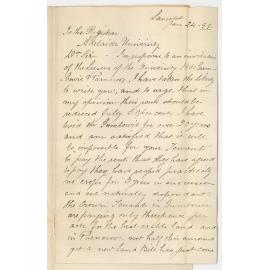 Lancelot
Jan 24. 98
To the Registrar
Adelaide University
Dr Sir - In response to an invitation
of the Lessees of the University Hds Gum-
bowie & Parnaroo, I have taken the liberty
to write you, and to urge that in
my opinion their rents should be
reduced fully 50 per cent. I have
lived in Gumbowie for over 20 years
and am satisfied that it will
be impossible for your Tenants
to pay the rent that they have agreed
to pay they have reaped practically
no crops for 3 years in succession
and are naturally despondent.
the Crown Tenants in Gumbowie
are paying only threepence per
acre for the best arable land and
in Parnaroo not half this amount
yet a new Land Bill has just come